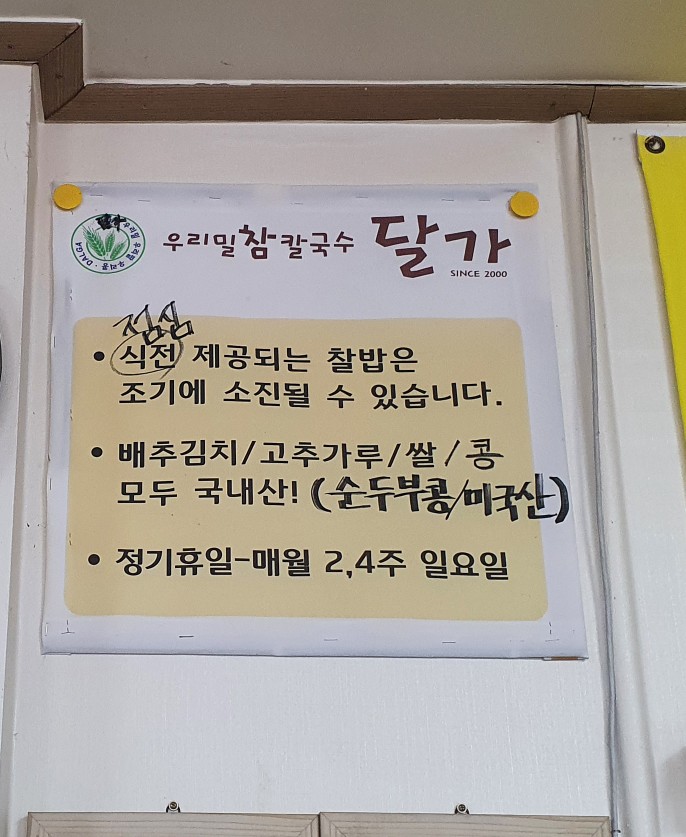 우리밀참칼국수 달가
SINCE 2000
DALGA
점심
• 식전 제공되는 찰밥은
조기에 소진될 수 있습니다.
• 배추김치/고추가루/쌀/콩
모두 국내산! (순두부콩/미국산)
• 정기휴일-매월 2,4주 일요일